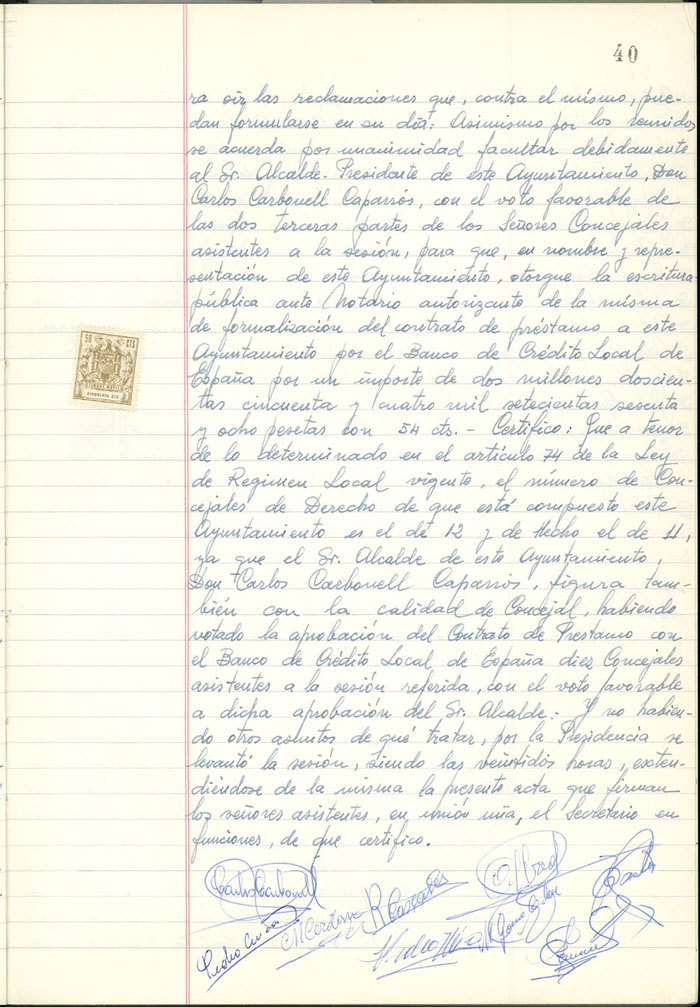 40
ra oir las reclamaciones que, contra el mismo, pue-
dan formularse en su día: Asimismo por los reunidos
se acuerda por unanimidad facultar debidamente
al Sr. Alcalde-Presidente de este Ayuntamiento, Don
Carlos Carbonell Caparrós, con el voto favorable de
las dos terceras partes de los Señores Concejales
asistentes a la sesión, para que, en nombre y repre-
sentación de este Ayuntamiento, otorgue la escritura
pública ante Notario autorizante de la misma
de formalización del contrato de préstamo a este
Ayuntamiento por el Banco de Crédito Local de
España por un importe de dos millones doscien-
tas cincuenta y cuatro mil setecientas sesenta
y ocho pesetas con 54 cts. - Certifico: Que a tenor
de lo determinado en el artículo 74 de la Ley
de Regimen Local vigente, el número de Con-
cejales de Derecho de que está compuesto este
Ayuntamiento es el de 12 y de Hecho el de 11,
ya que el Sr. Alcalde de este Ayuntamiento,
Don Carlos Carbonell Caparrós, figura tam-
bién con la calidad de Concejal, habiendo
votado la aprobación del Contrato de Prestamo con
el Banco de Crédito Local de España diez Concejales
asistentes a la sesión referida, con el voto favorable
a dicha aprobación del Sr. Alcalde: Y no habien-
do otros asuntos de que tratar, por la Presidencia se
levantó la sesión, siendo las veintidos horas, exten-
diéndose de la misma la presente acta que firman
los señores asistentes, en unión mia, el Secretario en
funciones, de que certifico.
50 CTS
CINCUENTA CTS
Carlos Carbonell
Pedro